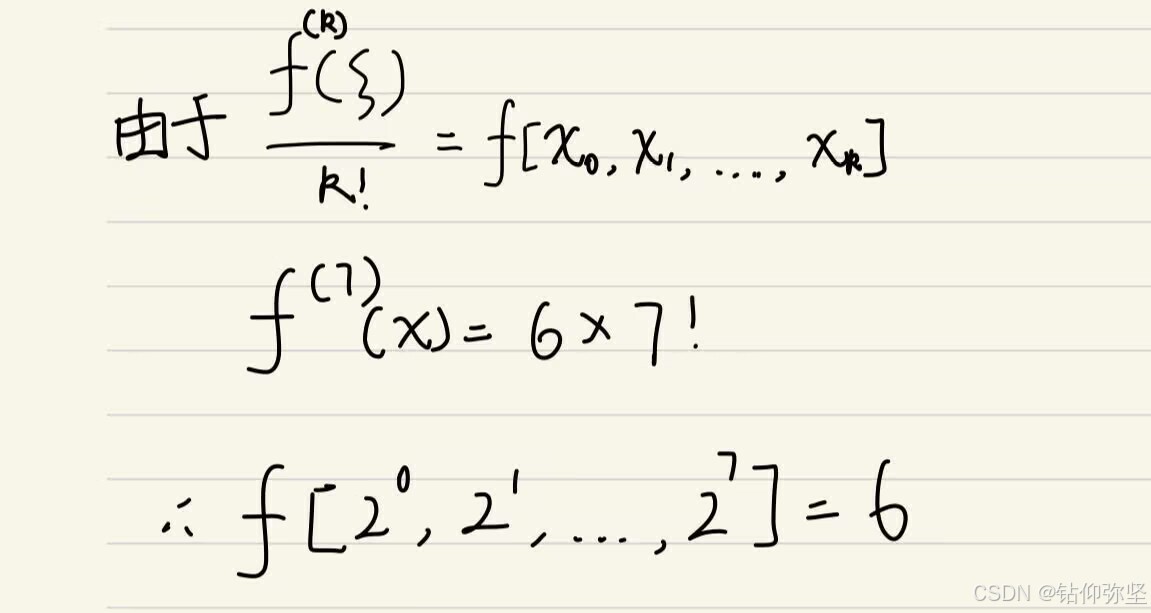 由于 f^{(k)}(ξ) / k! = f[x_0, x_1, ..., x_k]
f^{(7)}(x) = 6 × 7!
∴ f[2^0, 2^1, ..., 2^7] = 6
CSDN @钻仰弥坚